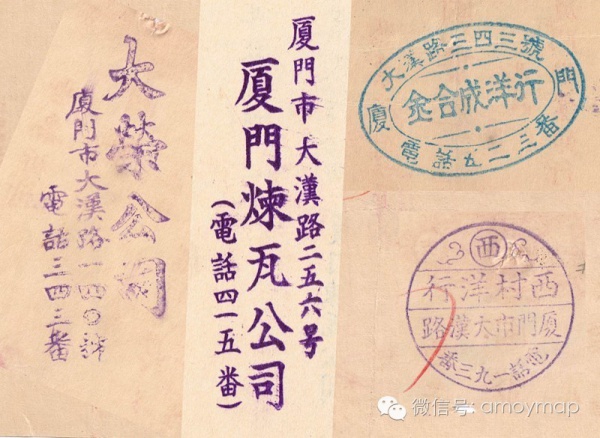 大榮公司
廈門市大漢路一四〇號
電話三四三番
厦門市大漢路二五六号
厦門煉瓦公司
(電話四一五番)
大漢路三四三號
廈門
金合成洋行
電話九二三番
西
西村洋行
廈門市大漢路
電話一九三番
微信号: amoymap